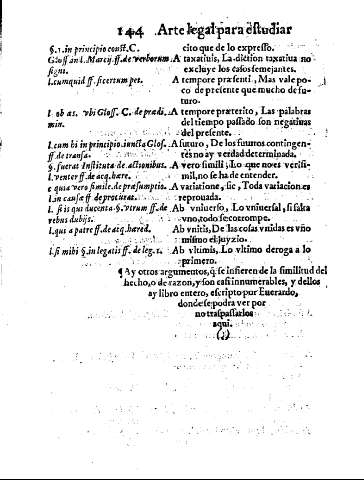 144 Arte legal para estudiar
§. 1. in principio const. C. cito que de lo expresso.
Gloss. and. Martij. ff. de verborum A taxatiuis, La diction taxatiua no
signi. excluye los casos semejantes.
l. cumquid ff. si certum pet. A tempore præsenti, Mas vale po-
co de presente que mucho de fu-
turo.
l. ob as. vbi Gloss. C. de prædi. A tempore præterito, Las palabras
min. del tiempo passado son negatiuas
del presente.
l. cum hi in principio. iuncta Glos. A futuro, De los futuros contingen-
ff de transa. tes no ay verdad determinada.
§. fuerat Instituta de actionibus. A vero simili, Lo que no es verisi-
l. venter ff. de acq. hære. mil, no se ha de entender.
c quia vero simile. de præsumptio. A variatione, sic, Toda variacion es
l. in causæ ff de procurat. reprouada.
l. si is qui ducenta. §. vtrum ff. de Ab vniuerso, Lo vniuersal, si falta
rebus dubijs. vno, todo se corrompe.
l. qui a patre ff. de acq. hæred. Ab vnitis, De las cosas vnidas es vno
mismo el juyzio.
l. si mibi §. in legatis ff. de leg. 1. Ab vltimis, Lo vltimo deroga a lo
primero.
¶ Ay otros argumentos, q̃ se infieren de la similitud del
hecho, o de razon, y son casi innumerables, y dellos
ay libro entero, escripto por Euerardo,
donde se podra ver por
no traspassarlos
aqui.
(;)